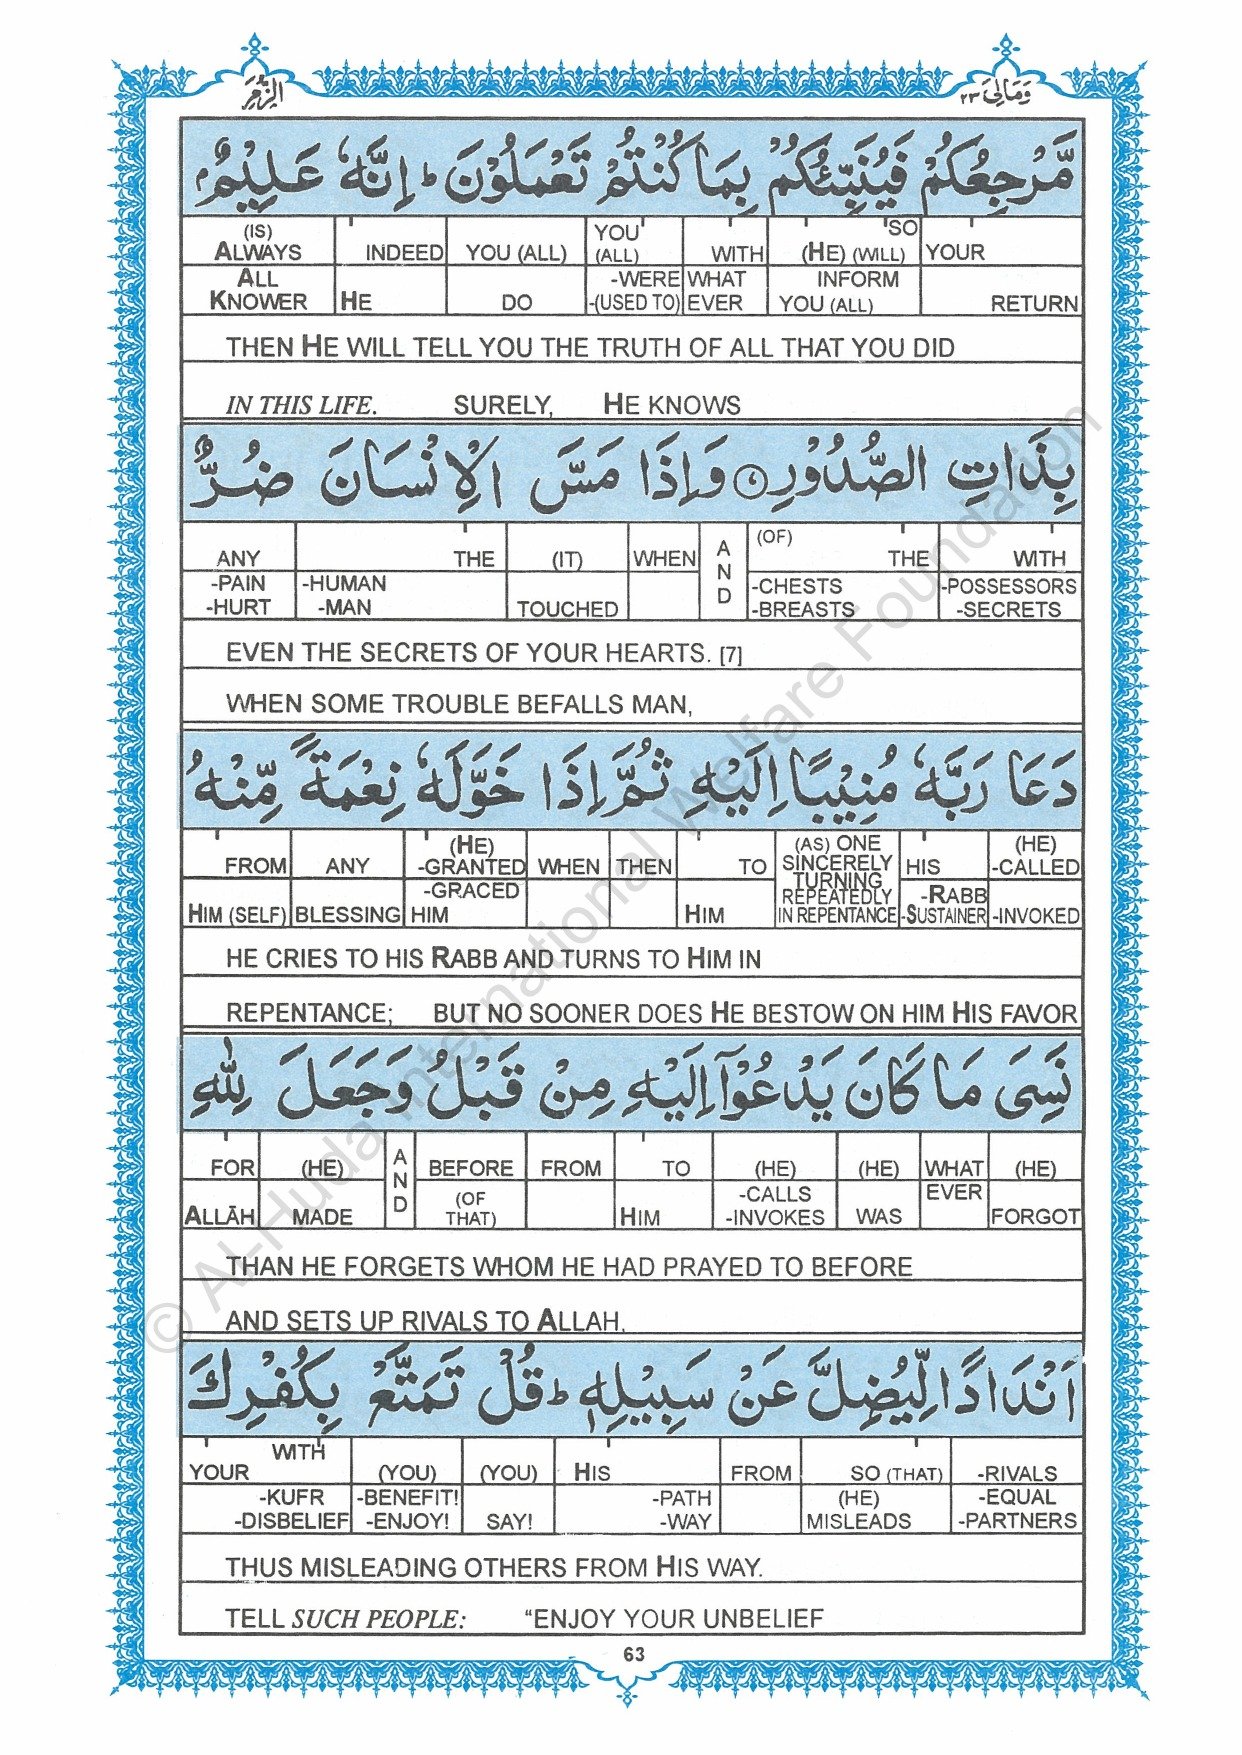 الزمر
وَمَالِىَ ٢٣
مَّرْجِعُكُمْ فَيُنَبِّئُكُمْ بِمَا كُنْتُمْ تَعْمَلُوْنَ ؕ اِنَّهٗ عَلِيْمٌۢ
(IS) ALWAYS INDEED YOU (ALL) YOU (ALL) WITH SO (HE) (WILL) YOUR
ALL KNOWER HE DO -WERE -(USED TO) WHAT EVER INFORM YOU (ALL) RETURN
THEN HE WILL TELL YOU THE TRUTH OF ALL THAT YOU DID
IN THIS LIFE. SURELY, HE KNOWS
بِذَاتِ الصُّدُوْرِ ۷ وَاِذَا مَسَّ الْاِنْسَانَ ضُرٌّ
ANY THE (IT) WHEN AND (OF) THE WITH
-PAIN -HURT -HUMAN -MAN TOUCHED -CHESTS -BREASTS -POSSESSORS -SECRETS
EVEN THE SECRETS OF YOUR HEARTS. [7]
WHEN SOME TROUBLE BEFALLS MAN,
دَعَا رَبَّهٗ مُنِيْبًا اِلَيْهِ ثُمَّ اِذَا خَوَّلَهٗ نِعْمَةً مِّنْهُ
FROM ANY (HE) -GRANTED WHEN THEN TO (AS) ONE SINCERELY TURNING HIS (HE) -CALLED
HIM (SELF) BLESSING -GRACED HIM HIM REPEATEDLY IN REPENTANCE -RABB -SUSTAINER -INVOKED
HE CRIES TO HIS RABB AND TURNS TO HIM IN
REPENTANCE; BUT NO SOONER DOES HE BESTOW ON HIM HIS FAVOR
نَسِىَ مَا كَانَ يَدْعُوْۤا اِلَيْهِ مِنْ قَبْلُ وَجَعَلَ لِلّٰهِ
FOR (HE) AND BEFORE FROM TO (HE) (HE) WHAT (HE)
ALLĀH MADE (OF THAT) HIM -CALLS -INVOKES WAS EVER FORGOT
THAN HE FORGETS WHOM HE HAD PRAYED TO BEFORE
AND SETS UP RIVALS TO ALLAH,
اَنْدَادًا لِّيُضِلَّ عَنْ سَبِيْلِهٖ ؕ قُلْ تَمَتَّعْ بِكُفْرِكَ
WITH YOUR (YOU) (YOU) HIS FROM SO (THAT) -RIVALS
-KUFR -DISBELIEF -BENEFIT! -ENJOY! SAY! -PATH -WAY (HE) MISLEADS -EQUAL -PARTNERS
THUS MISLEADING OTHERS FROM HIS WAY.
TELL SUCH PEOPLE: “ENJOY YOUR UNBELIEF
63
© AL-Huda International Welfare Foundation